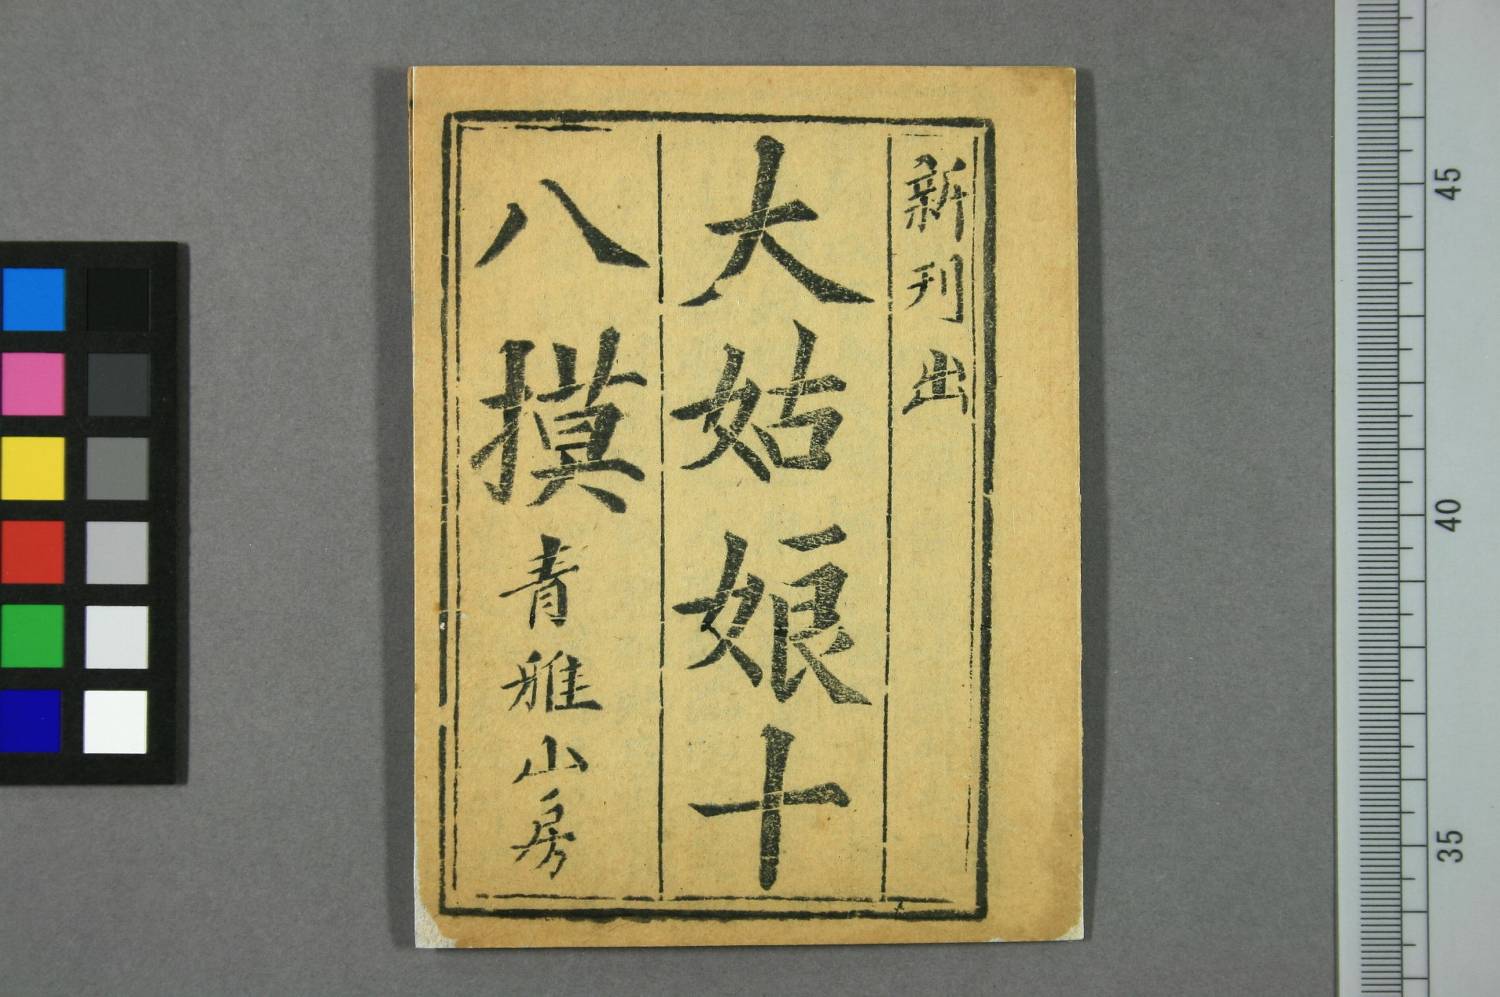 新刊出
大姑娘十
八摸青雅山房
45
40
35